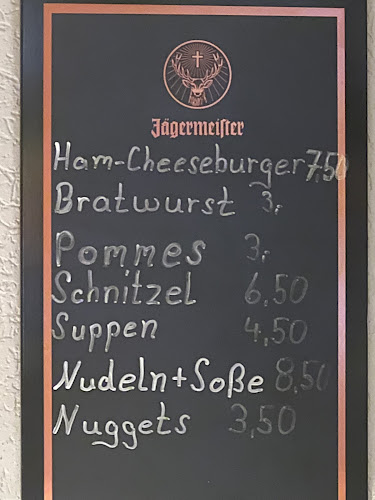 Jägermeister
Ham-Cheeseburger 7,50
Bratwurst 3,-
Pommes 3,-
Schnitzel 6,50
Suppen 4,50
Nudeln+Soße 8,50
Nuggets 3,50